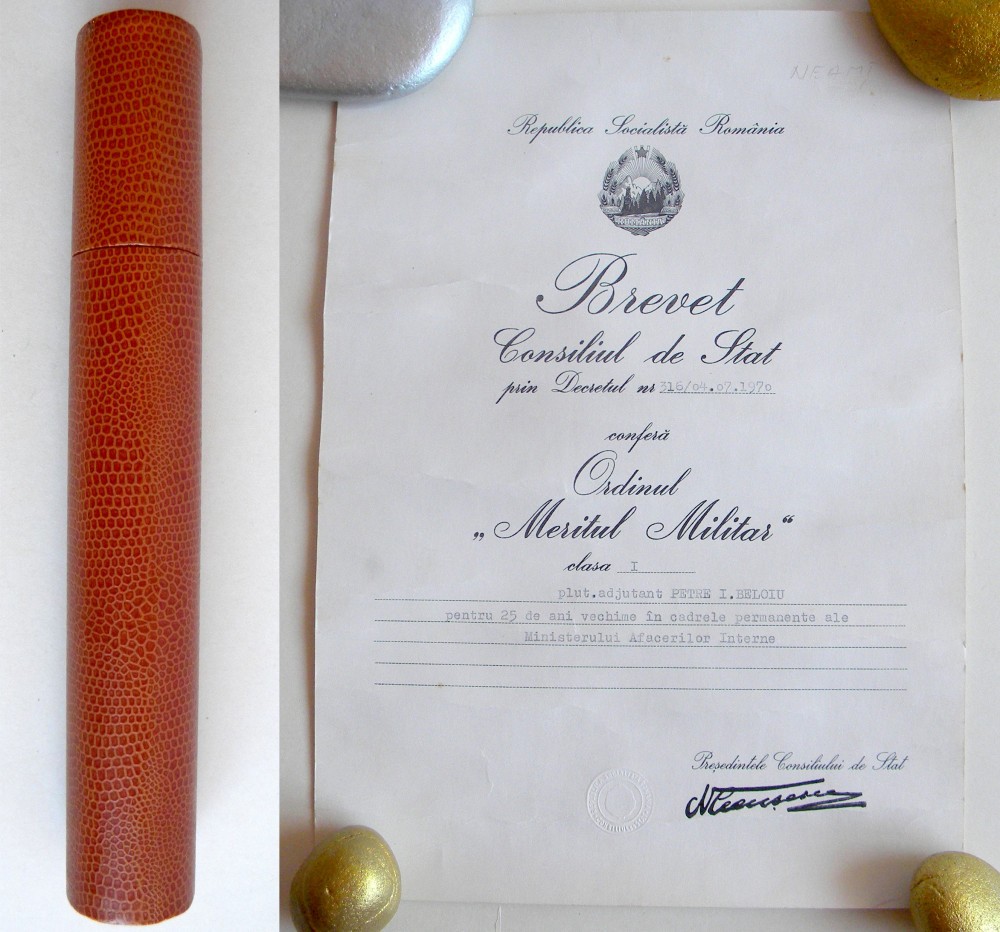 NEAMȚ
Republica Socialistă România
Brevet
Consiliul de Stat
prin Decretul nr 316/04.07.1970
conferă
Ordinul
„Meritul Militar“
clasa I
plut.adjutant PETRE I.BELOIU
pentru 25 de ani vechime în cadrele permanente ale
Ministerului Afacerilor Interne
Președintele Consiliului de Stat
NCeaușescu